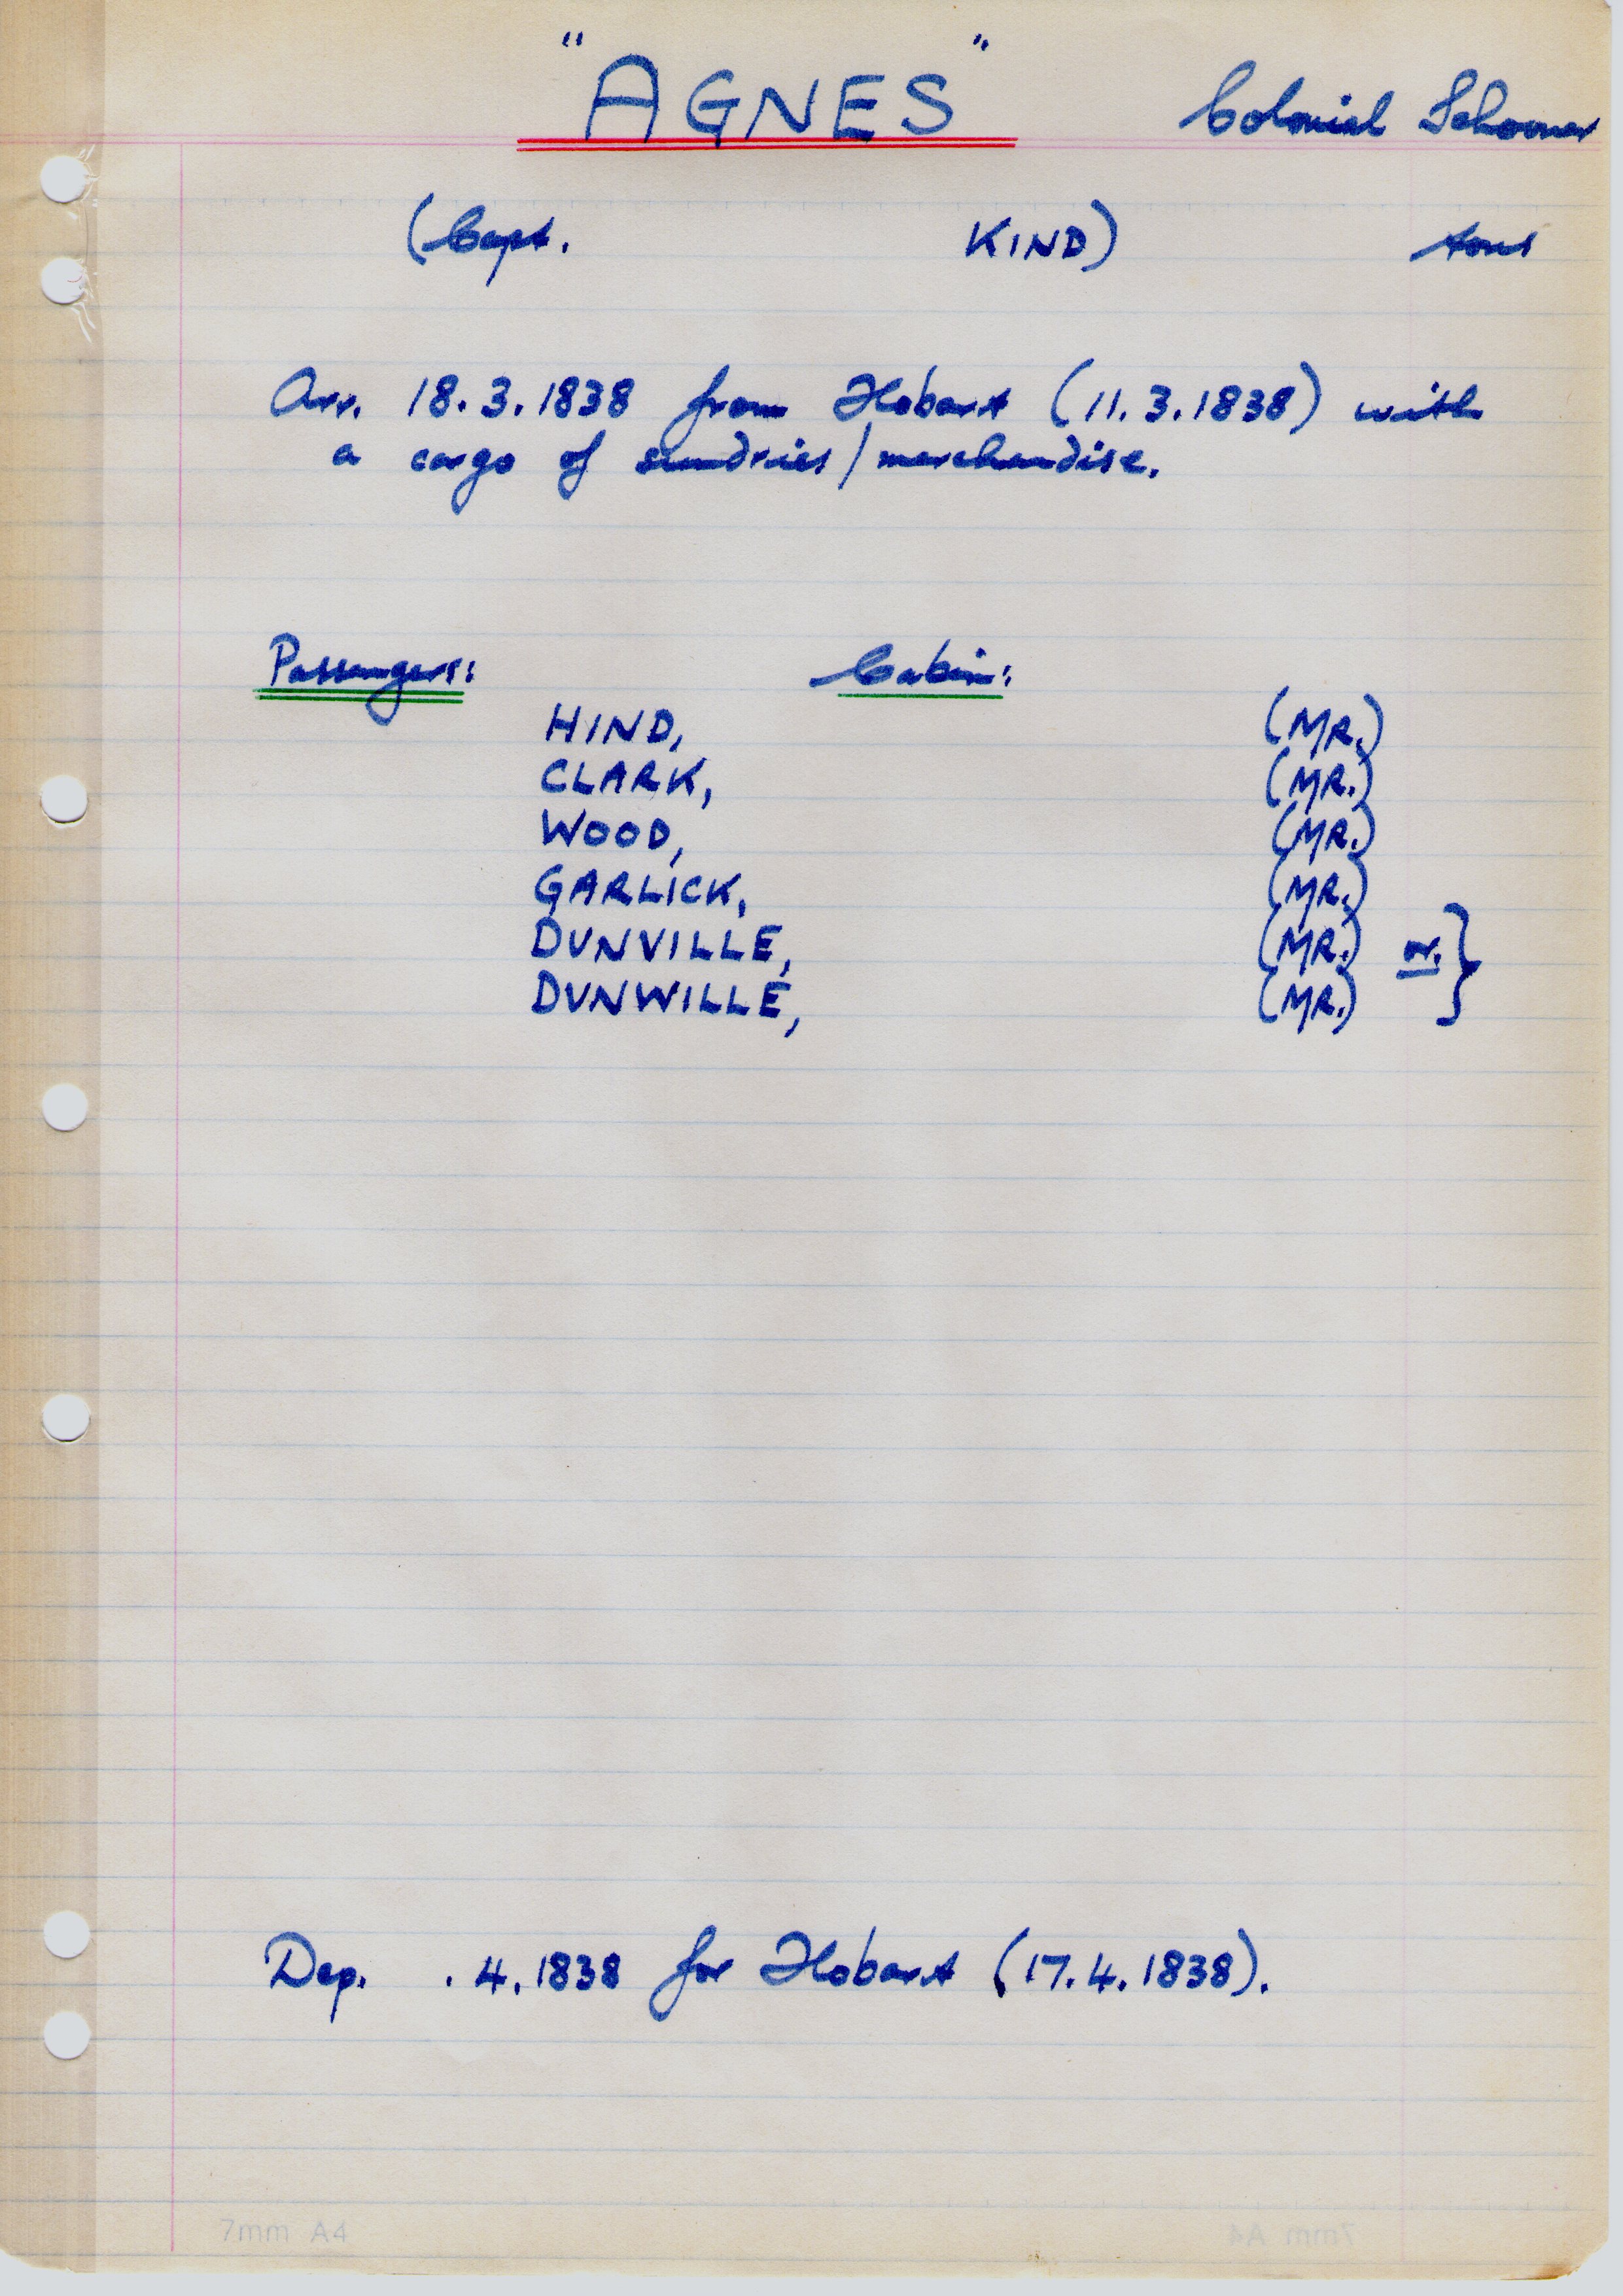 "AGNES" Colonial Schooner
(Capt. KIND) tons
Arr. 18.3.1838 from Hobart (11.3.1838) with
a cargo of sundries/merchandise.
Passengers: Cabin:
HIND, (MR.)
CLARK, (MR.)
WOOD, (MR.)
GARLICK, (MR.)
DUNVILLE, (MR.) or. }
DUNWILLE, (MR.)
Dep. .4.1838 for Hobart (17.4.1838).
7mm A4
7mm A4